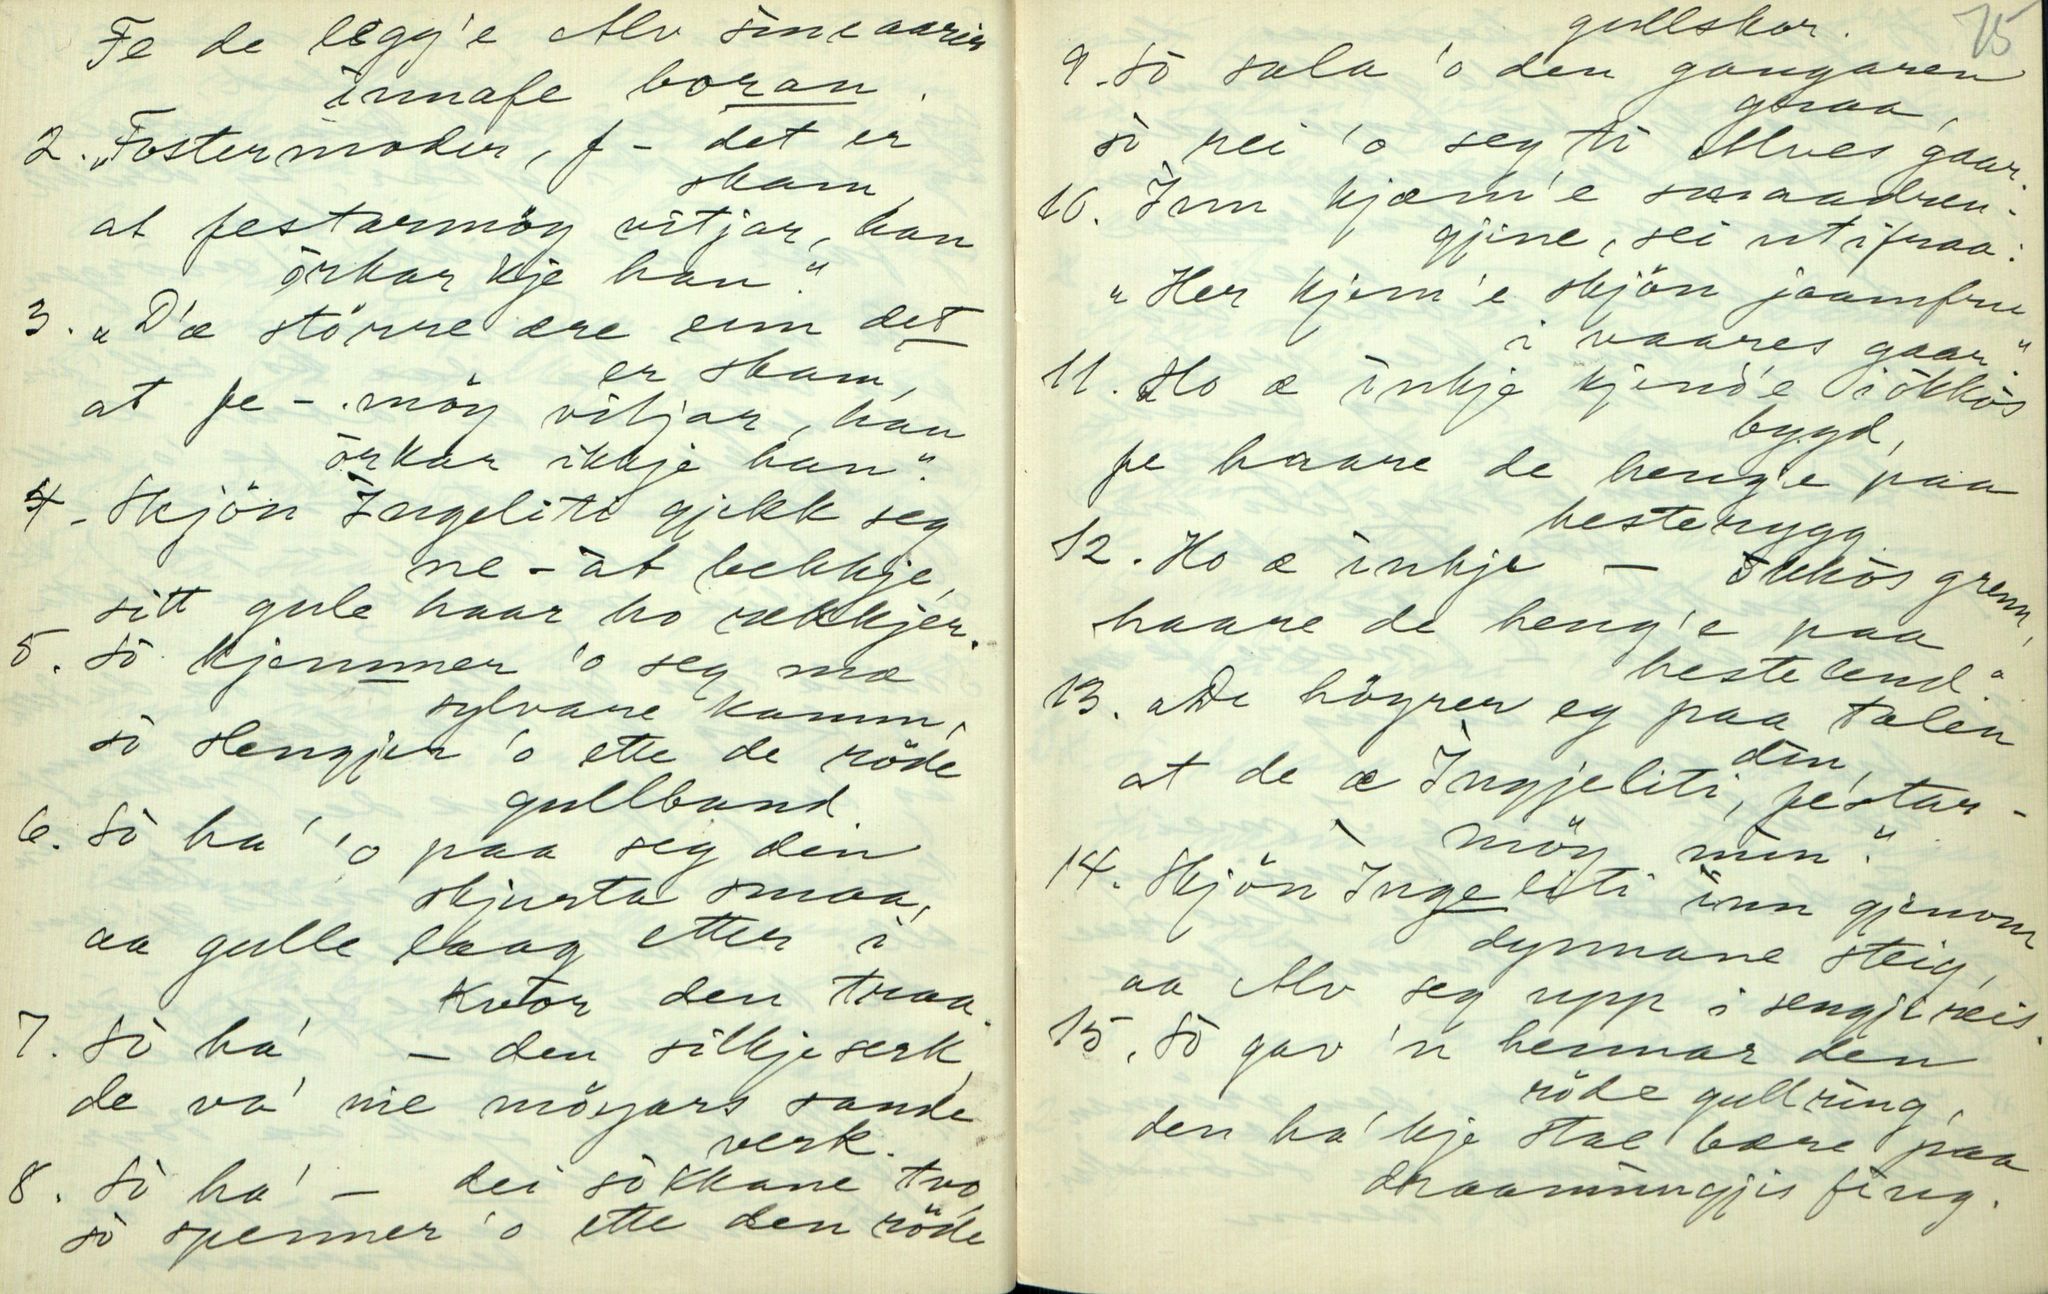 Fe de legg'e Alv sine aarir
innafe boran.
2. „Fostermoder, f - det er
skam,
at festarmöy vitjar, han
örkar kje han."
3. „D'æ större ære enn det
er skam,
at fe - .möy vitjar, han
örkar ikkje han."
4. Skjön Ingeliti gjekk seg
ne - åt bekkje,
sitt gule haar ho rekkjer.
5. Så kjemmer 'o seg mæ
sylvare kamm,
så slengjer 'o ette de röde
gullband
6. Så ha' 'o paa seg den
skjurta smaa,
aa gulle laag etter i
kvor den traa.
7. Så ha' - den silkjeserk,
de va' nie möyars sande
verk.
8. Så ha' - dei såkkane tvo,
så spenner 'o ette den röde
75
gullskor.
9. Så sala 'o den gangaren
graa,
så rei 'o seg ti Alves gaar.
10. Inn kjæm'e smaadren-
gjine, sei utifraa:
„Her kjem'e skjön jaamfru
i vaares gaar."
11. Ho æ inkje kjend'e i åkkås
bygd,
fe haare de heng'e paa
hesterygg.
12. Ho æ inkje - åkkås grenn,
haare de heng'e paa
hestelend."
13. „De höyrer eg paa talen
din,
at de æ Ingjeliti, festar-
möy min."
14. Skjön Ingeliti inn gjenom
dynnane steig,
aa Alv seg upp i sengji reis.
15. Så gav 'n hennar den
röde gullring,
den ha' kje stae bære paa
draamingjis fing.